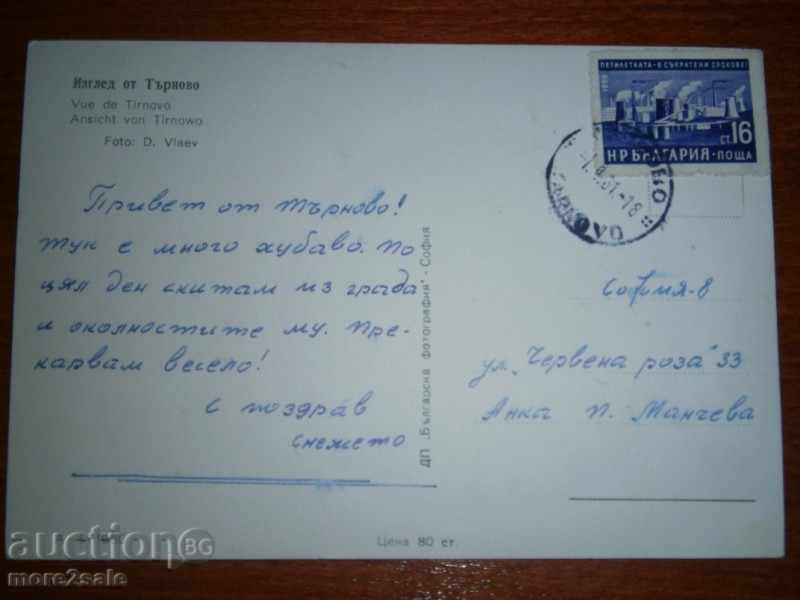 Изглед от Търново
Vue de Tirnovo
Ansicht von Tirnowo
Foto: D. Vlaev
Привет от Търново!
Тук е много хубаво. По
цял ден скитам из града
и околностите му. Пре-
карвам весело!
С поздрав
Снежето
ДП „Българска фотография" - София
Цена 80 ст.
ПЕТИЛЕТКАТА - В СЪКРАТЕНИ СРОКОВЕ!
1959
СТ. 16
НР БЪЛГАРИЯ · ПОЩА
София-8
ул. „Червена роза" 33
Анка П. Манчева
auction BG
more2sale